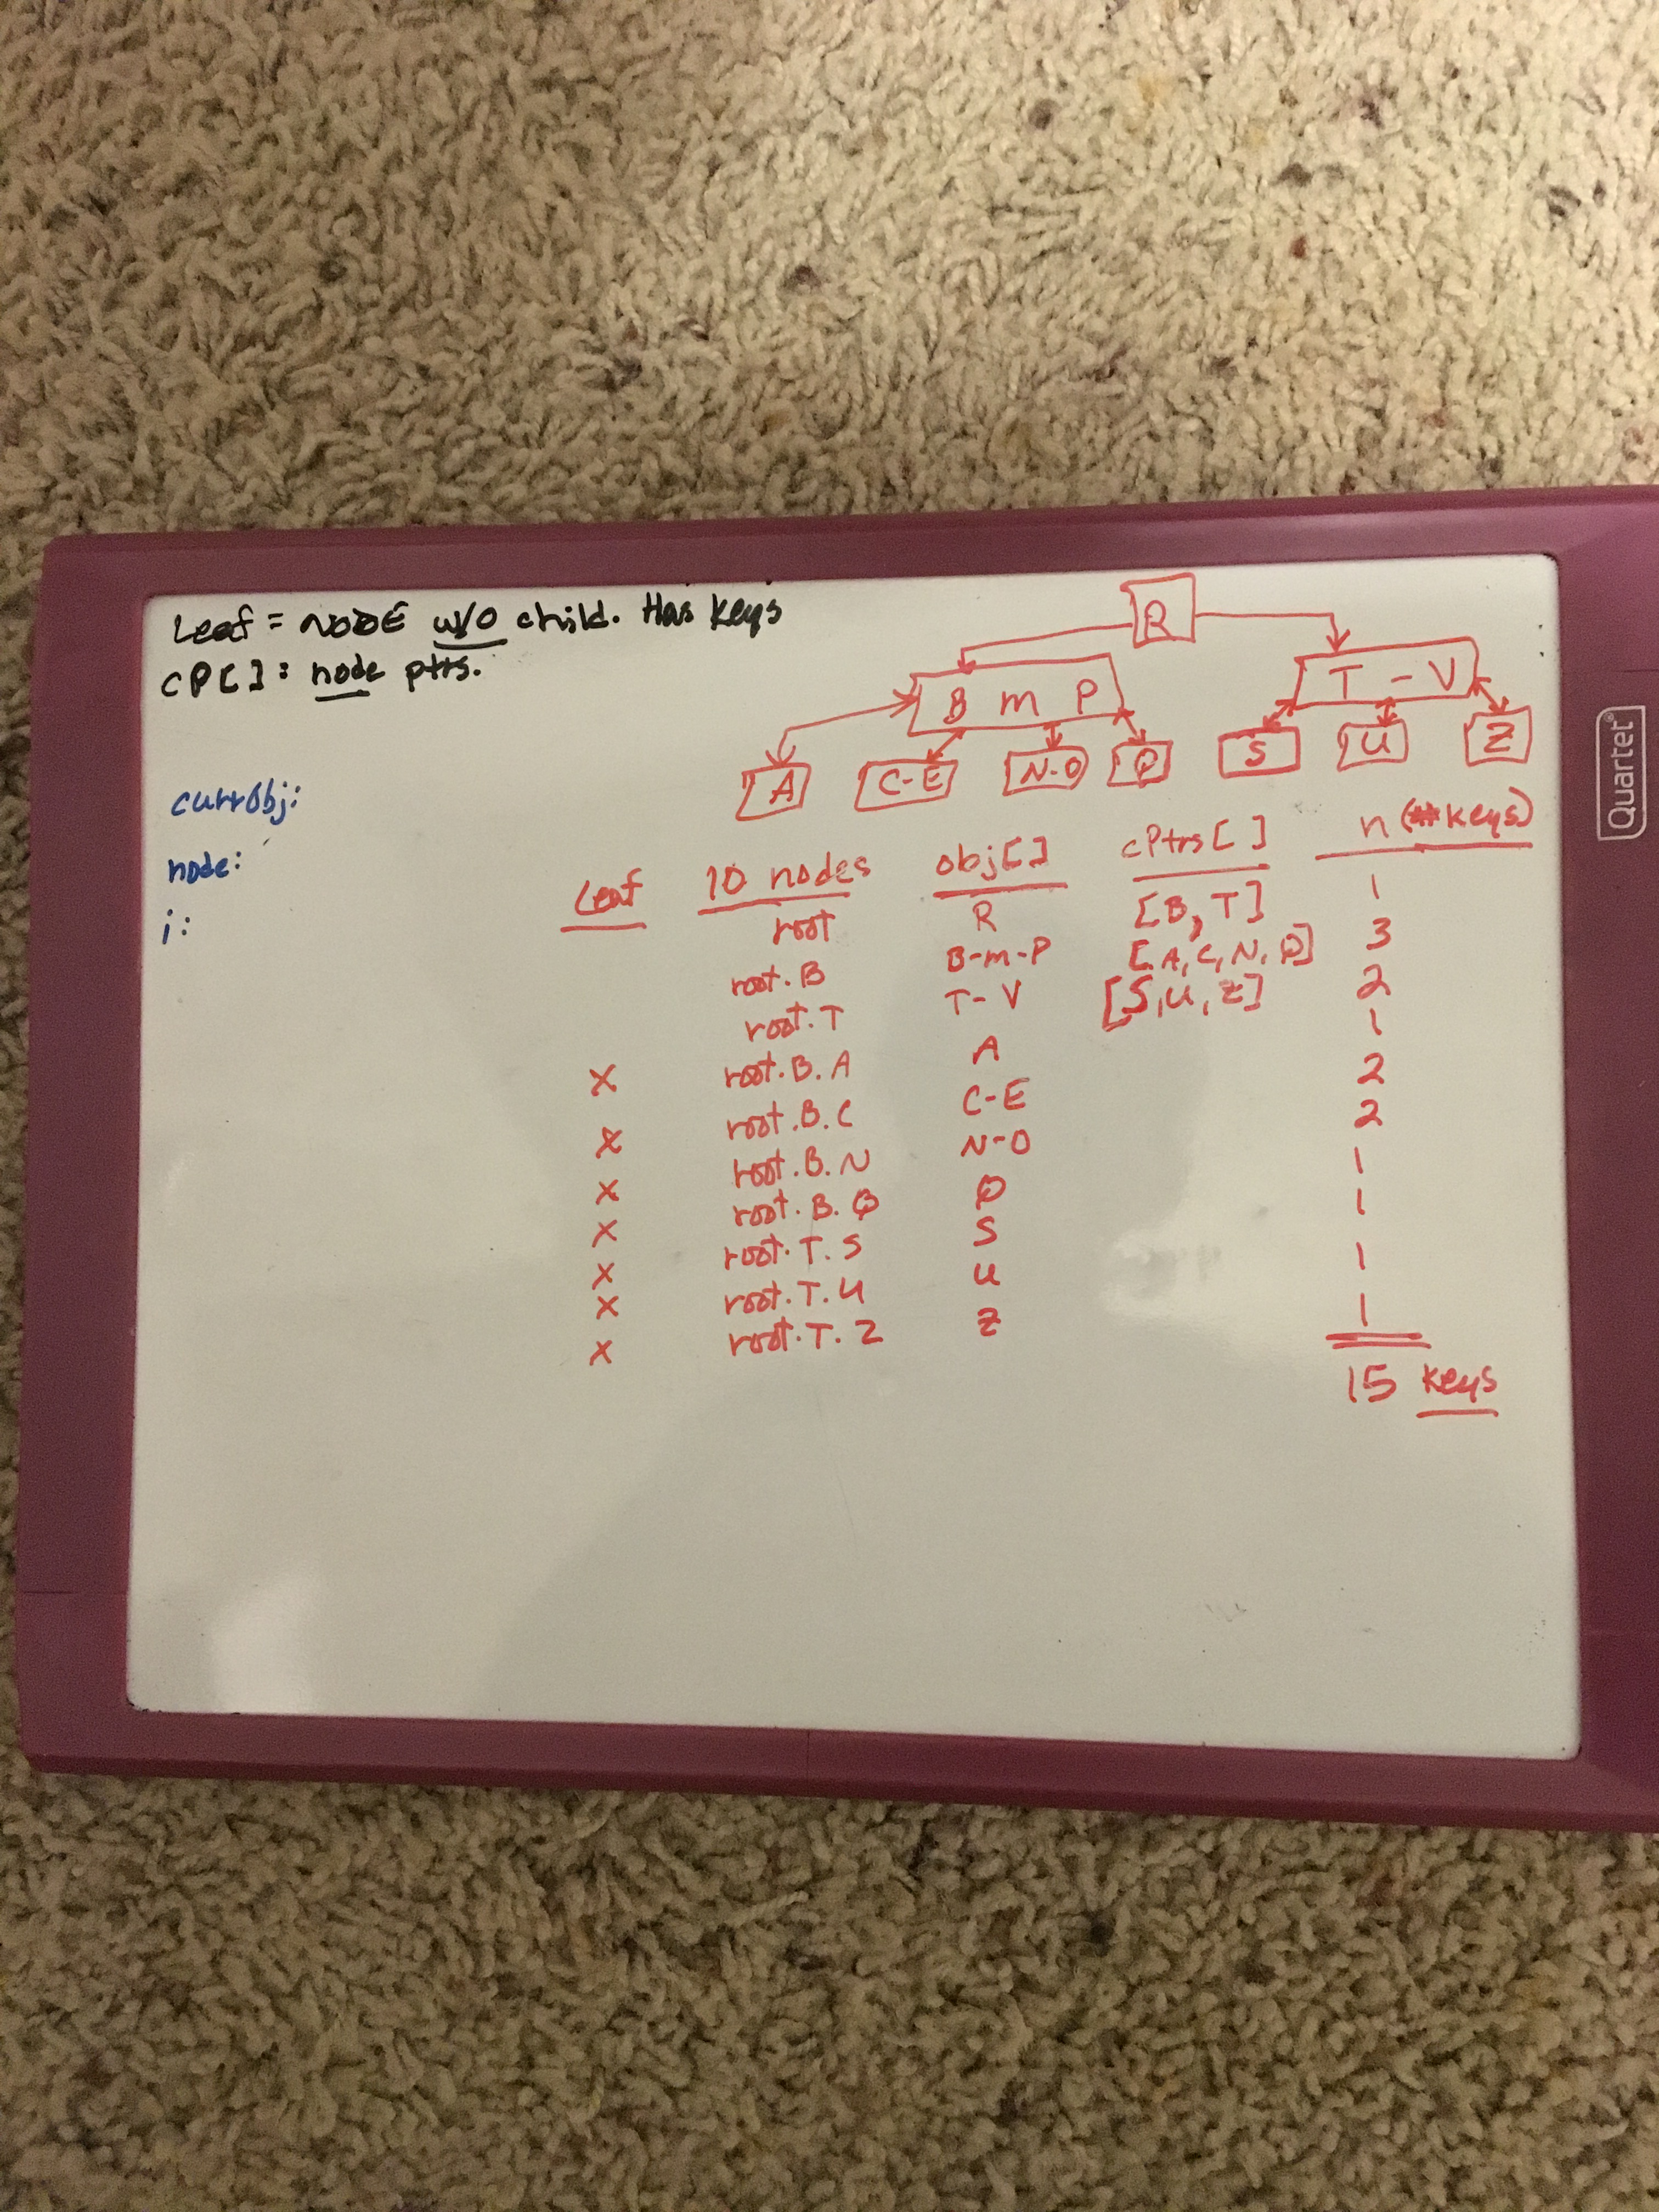 Leaf = NODE w/o child. Has keys
CP[] : node ptrs.
R
B m P
T - V
A
C-E
N-O
Q
S
U
Z
currObj:
node:
i:
Leaf 10 nodes obj[] cPtrs[] n(#keys)
root R [B, T] 1
root.B B-m-P [A, C, N, Q] 3
root.T T-V [S, U, Z] 2
x root.B.A A 1
x root.B.C C-E 2
x root.B.N N-O 2
x root.B.Q Q 1
x root.T.S S 1
x root.T.U U 1
x root.T.Z Z 1
15 keys
Quartet®